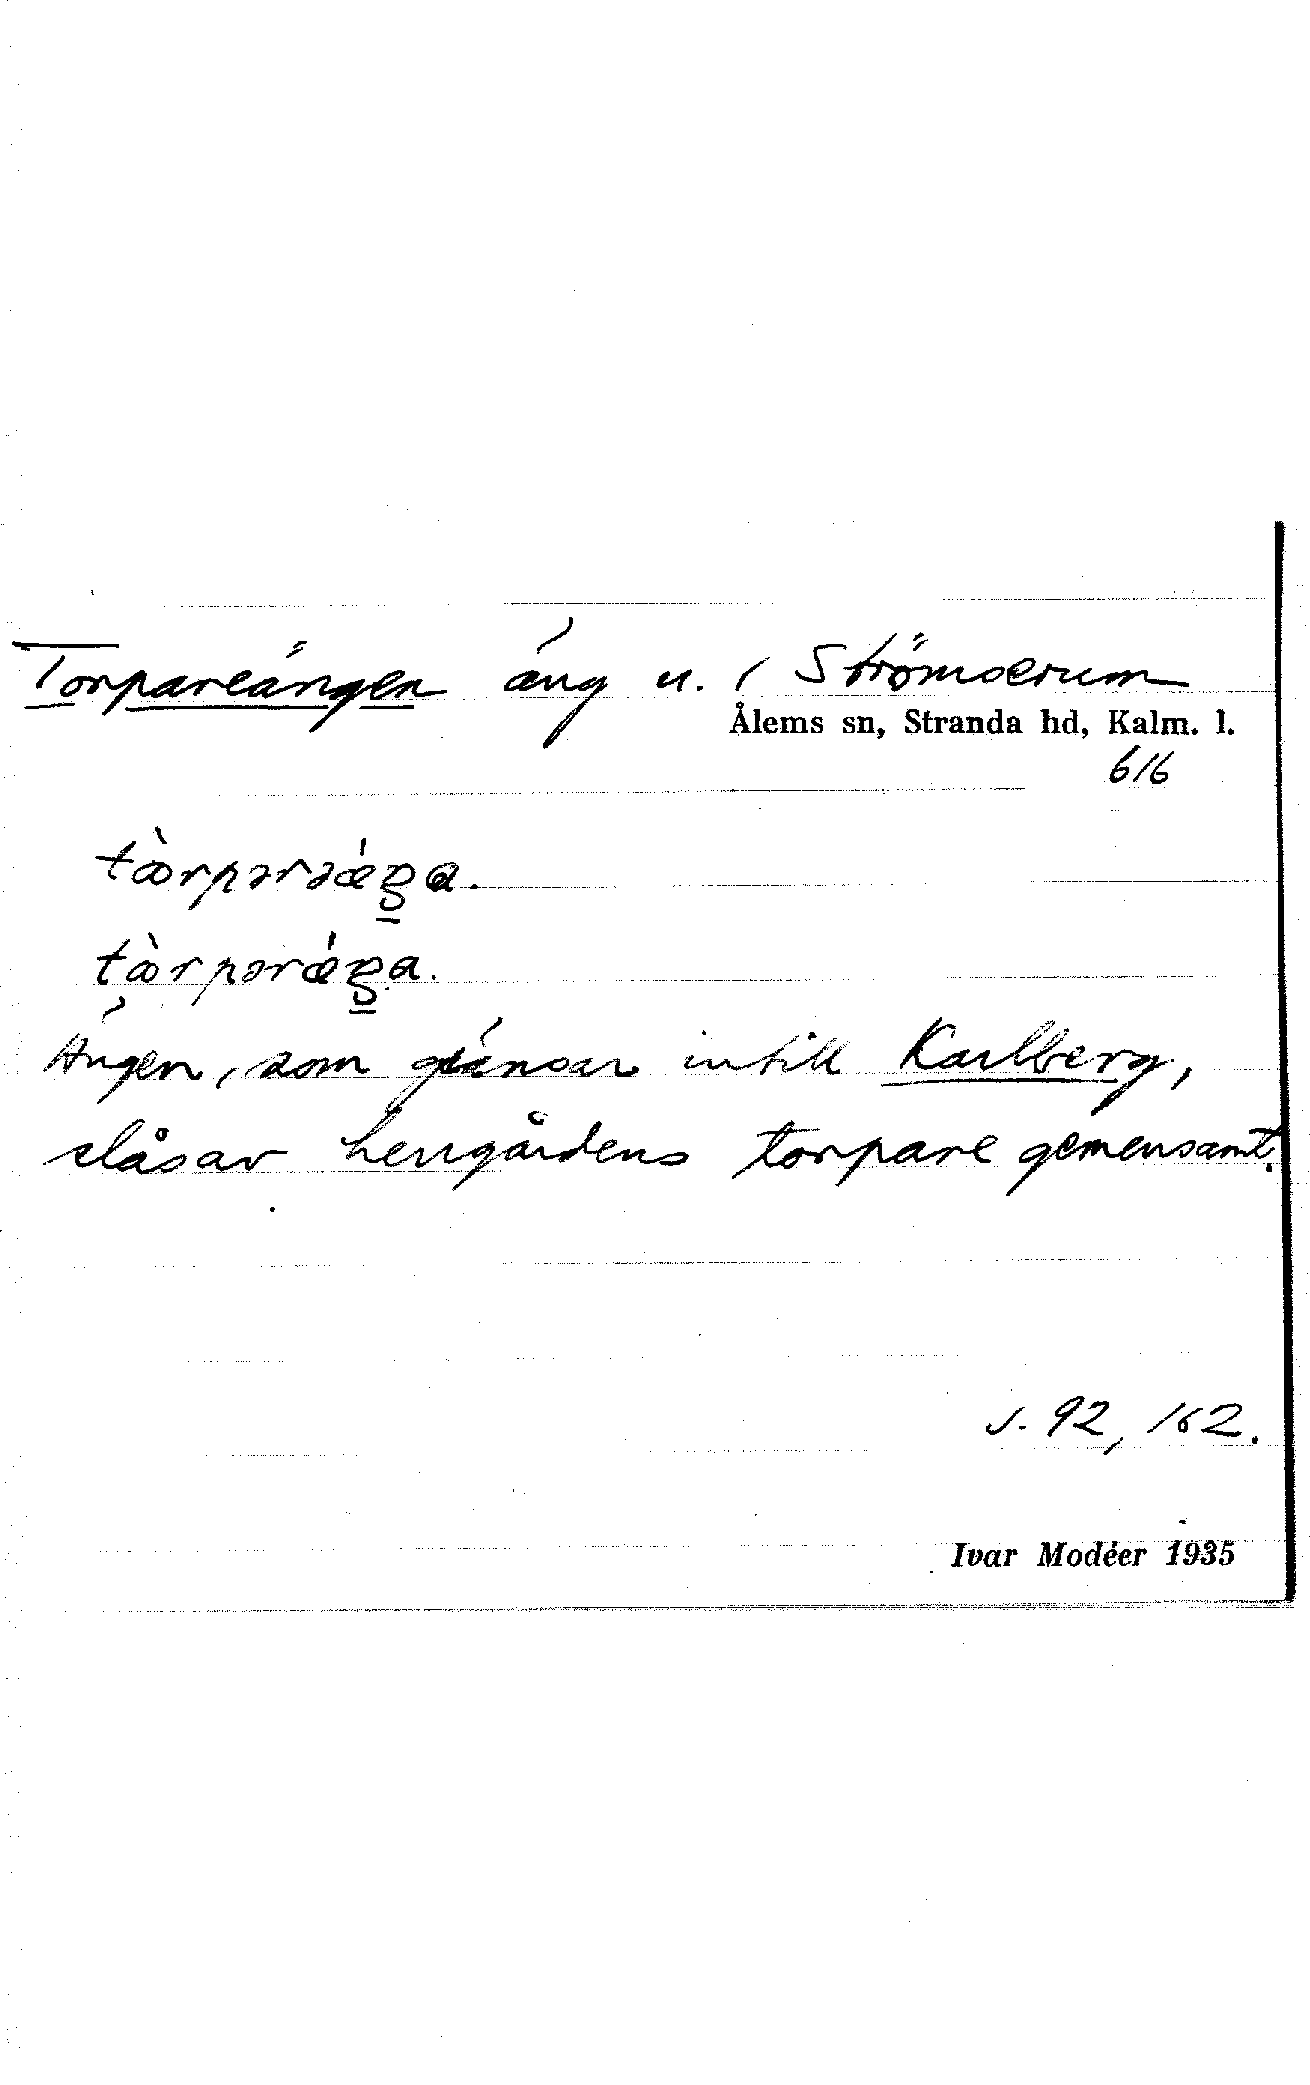 Torpareängen äng u. / Strömserum
Ålems sn, Stranda hd, Kalm. l.
616
Ängen, som gränsar intill Karlberg,
slås av herrgårdens torpare gemensamt.
s. 92, 162.
Ivar Modéer 1935